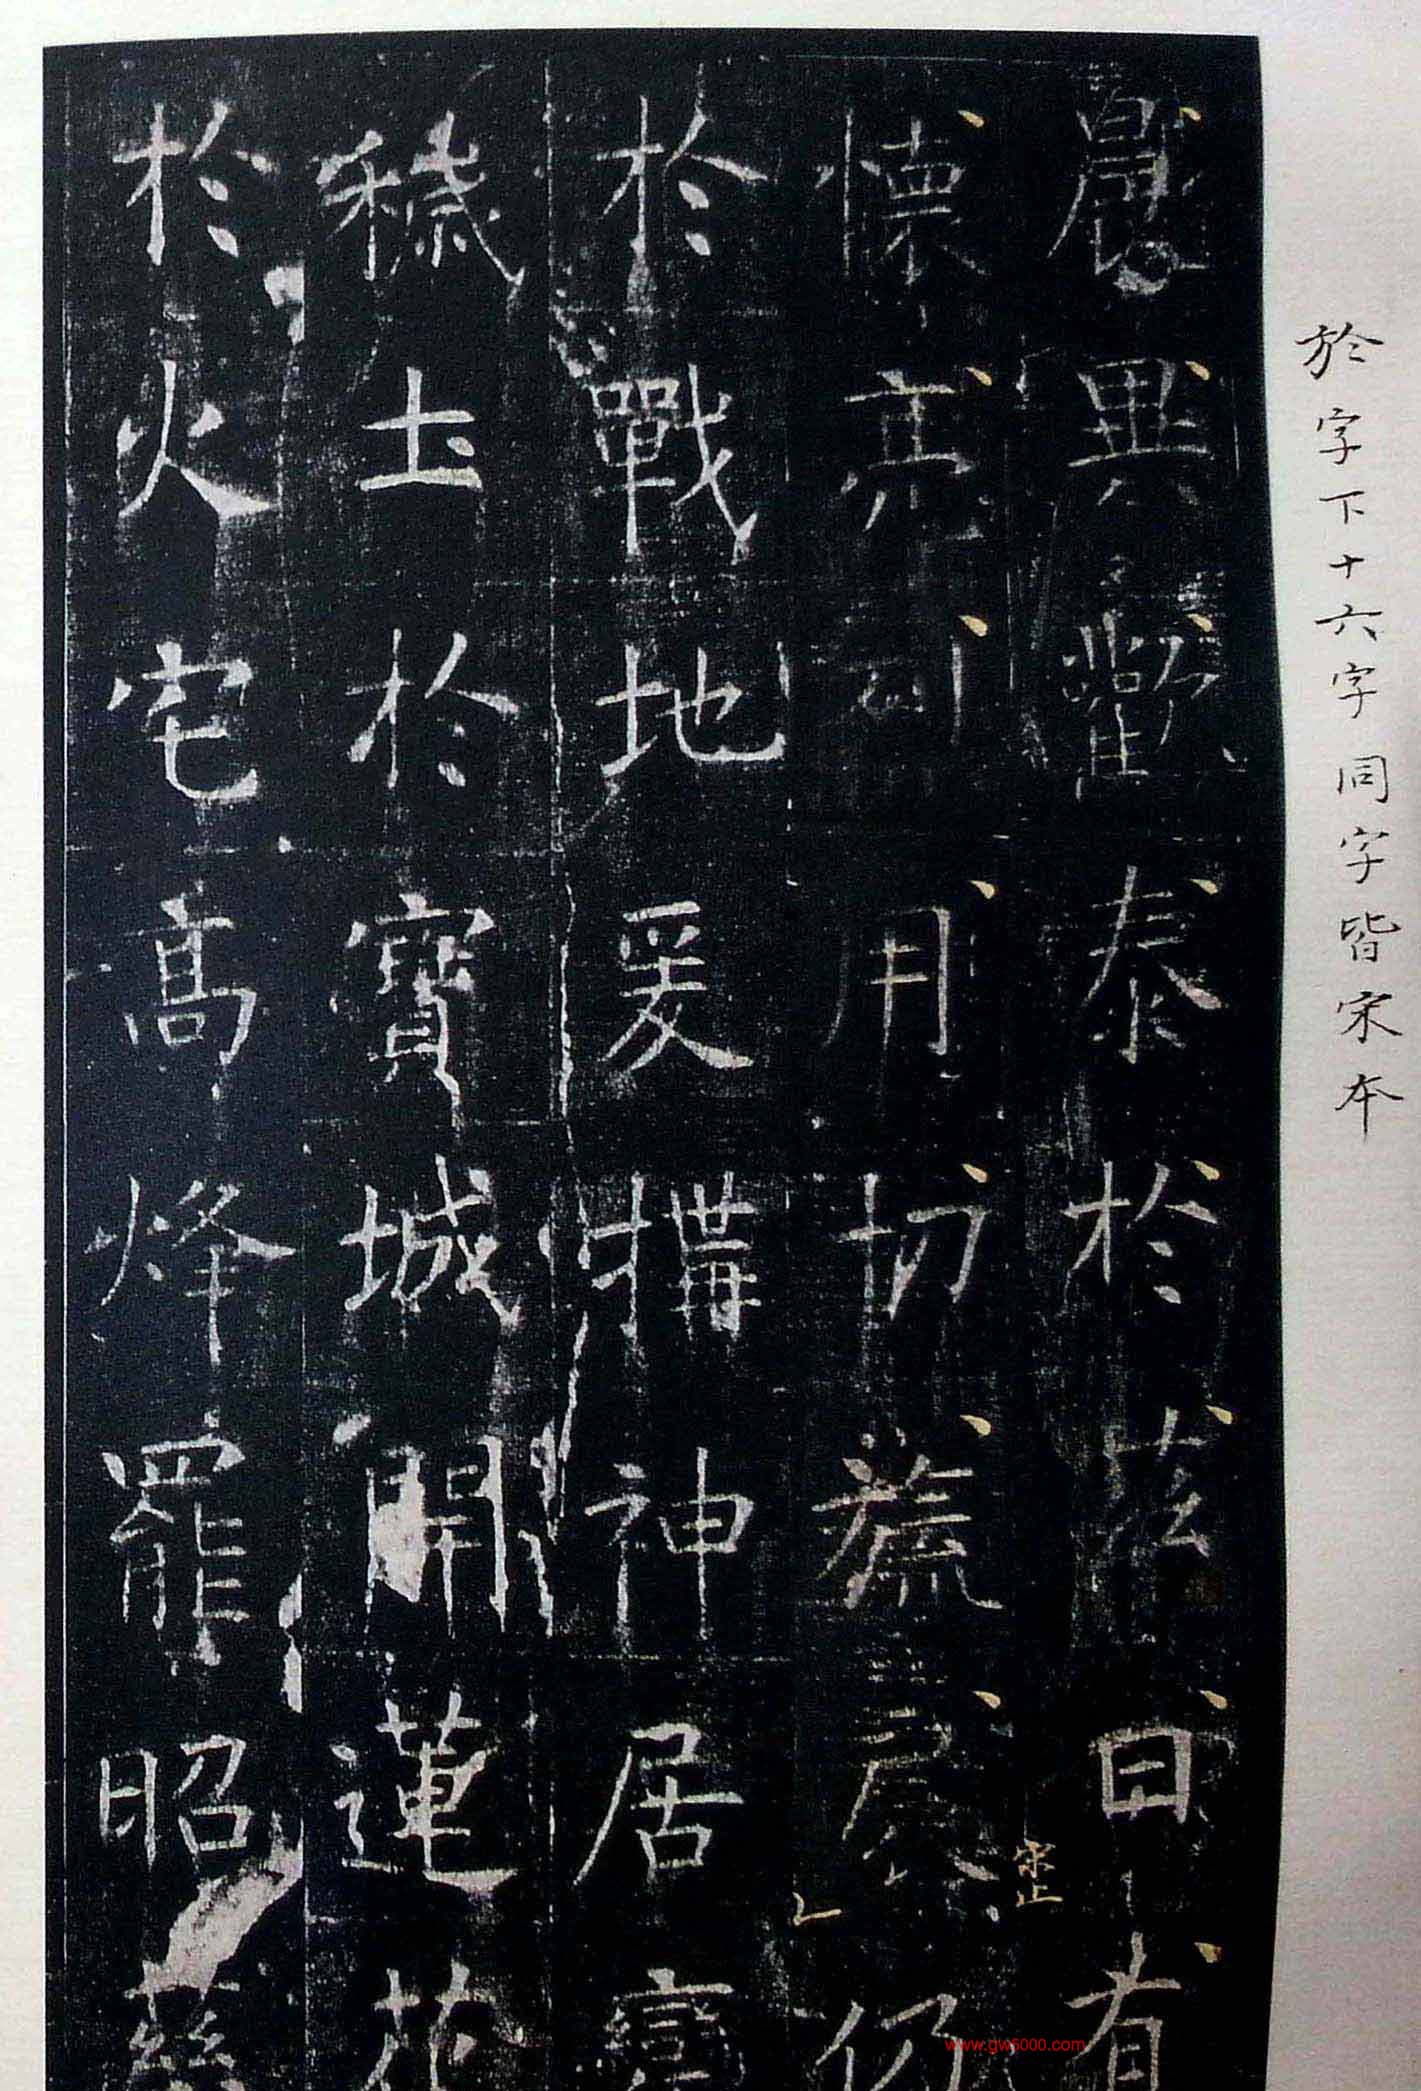 於字下十六字同字皆宋本
晨異歡泰於茲日有
懷亮烈用切旒扆仍
宋止
於戰地爰構神居變
穢土於寶城開蓮花
於火宅高烽罷昭慈
www.gw5000.com